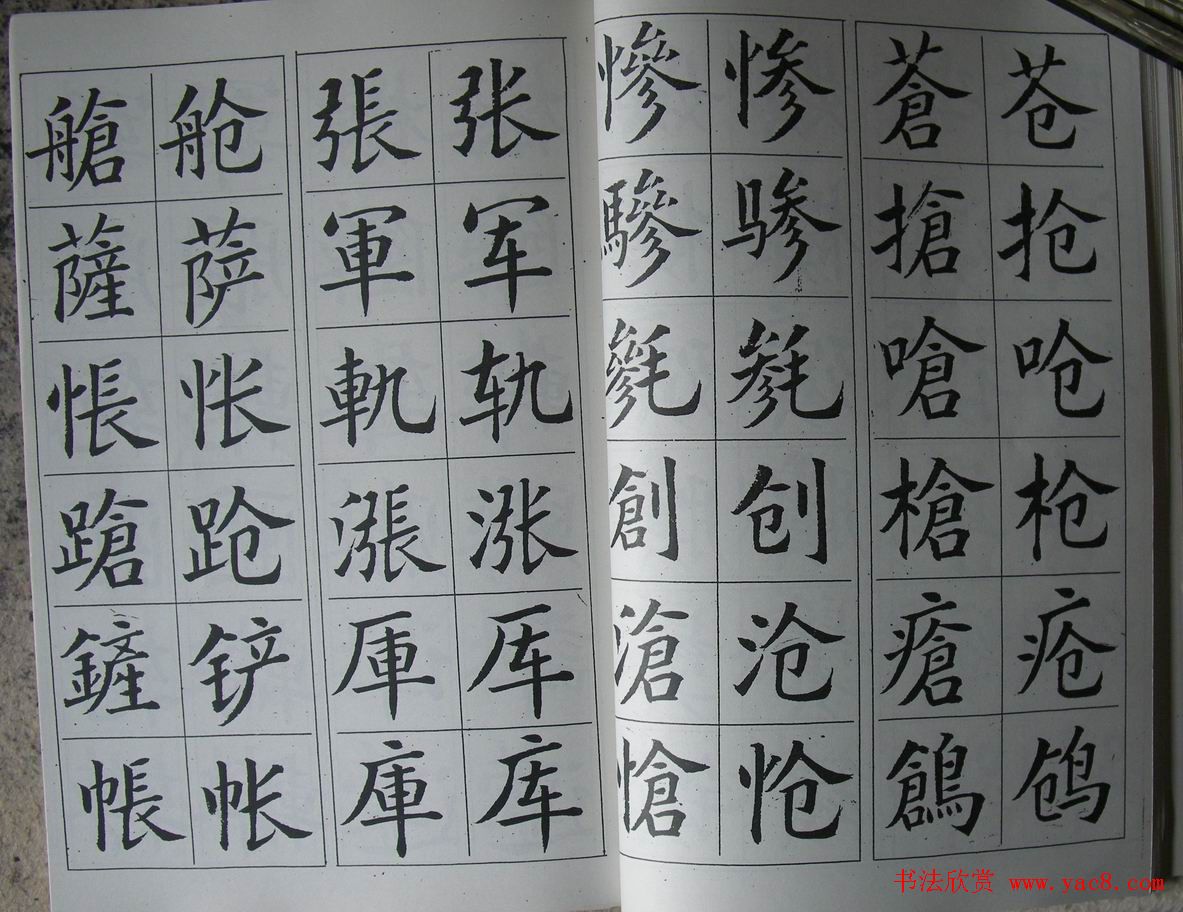 苍抢呛枪疮鸧
蒼搶嗆槍瘡鶬
惨骖毵创沧怆
慘驂毿創滄愴
张军轨涨厍库
張軍軌漲厙庫
舱萨怅跄铲帐
艙薩悵蹌鏟帳
书法欣赏 www.yac8.com